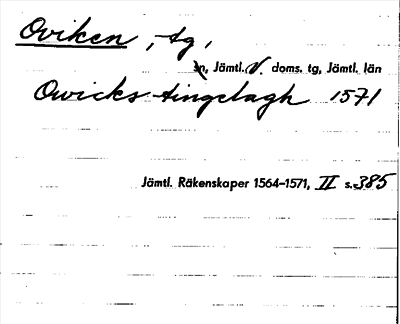 Oviken, tg,
sn, Jämtl. V. doms. tg, Jämtl. län
Owicks tingelagh 1571
Jämtl. Räkenskaper 1564–1571, II s. 385